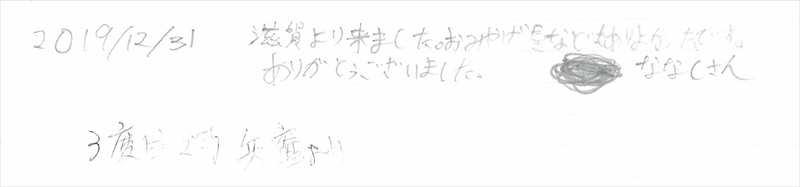 2019/12/31 滋賀より来ました。おみやげ屋などありよかったです。
ありがとうございました。 ななしさん
3度目です 兵庫より